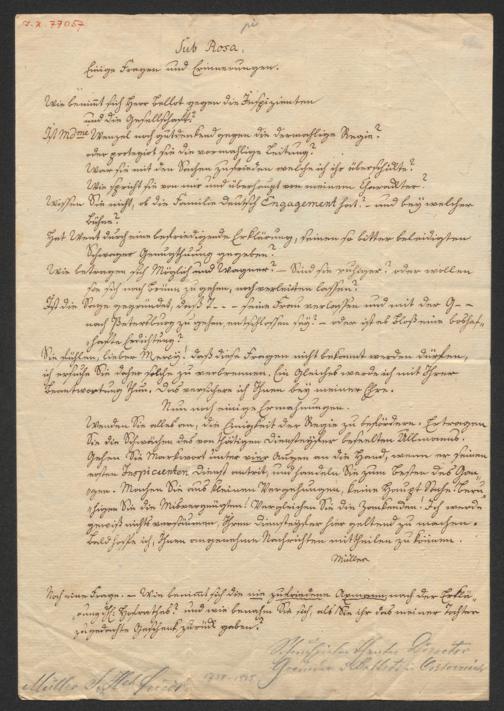 I.N. 77057
Sub Rosa.
Einige Fragen und Erinnerungen.
Wie benimmt sich Herr Ballot gegen die Inspizienten
und die Gesellschaft?
Ist Mdme Wenzel noch gutdenkend gegen die dermahlige Regie?
oder protegirt sie die vormahlige Leitung?
War sie mit den Sachen zufrieden welche ich ihr überschickte?
Wie spricht sie von mir und überhaupt von meinem Charakter?
Wissen Sie nicht, ob die Familie Deutsch Engagement hat? und bey welcher
Bühne?
Hat Weit durch eine befriedigende Erklärung, seinen so bitter beleidigten
Schwager Genugthuung gegeben?
Wie betragen sich Möglich und Wagner? Sind sie ruhiger? oder wollen
sie sich nach Brünn zu gehen, noch verleiten lassen?
Ist die Sage gegründet, daß J - - - seine Frau verlassen und mit der G - -
nach Petersburg zu gehen entschlossen sey? oder ist es bloß eine boshaf-
hafte Erdichtung?
Sie fühlen, lieber Mercy! daß diese Fragen nicht bekannt werden dürfen,
ich ersuche Sie daher solche zu verbrennen. Ein Gleiches werde ich mit Ihrer
Beantwortung thun. Das versichere ich Ihnen bey meiner Ehre.
Nun noch einige Ermahnungen.
Wenden Sie alles an, die Einigkeit der Regie zu befördern. Ertragen
Sie die Schwächen des von thätigen Diensteifer beseelten Allmanns.
Gehen Sie Markwort unter vier Augen an die Hand, wenn er seinen
ersten Inspicienten Dienst antrit, und handeln Sie zum besten des Gan-
zen. Machen Sie aus kleinen Vergehungen, keine Haupt Sache. Beru-
higen Sie die Misvergnügten! Vergleichen Sie die Zankenden! Ich werde
gewiß nichts versäumen, Ihren Diensteifer hier geltend zu machen.
Bald hoffe ich, Ihnen angenehme Nachrichten mittheilen zu können.
Müller
Noch eine Frage. Wie benimmt sich die nie zufriedene Axmann, nach der Erklä-
rung H: Hofrathes? und wie benahm Sie sich, als Sie ihr das meiner Tochter
zugedachte Geschenk zurück gaben?
Müller